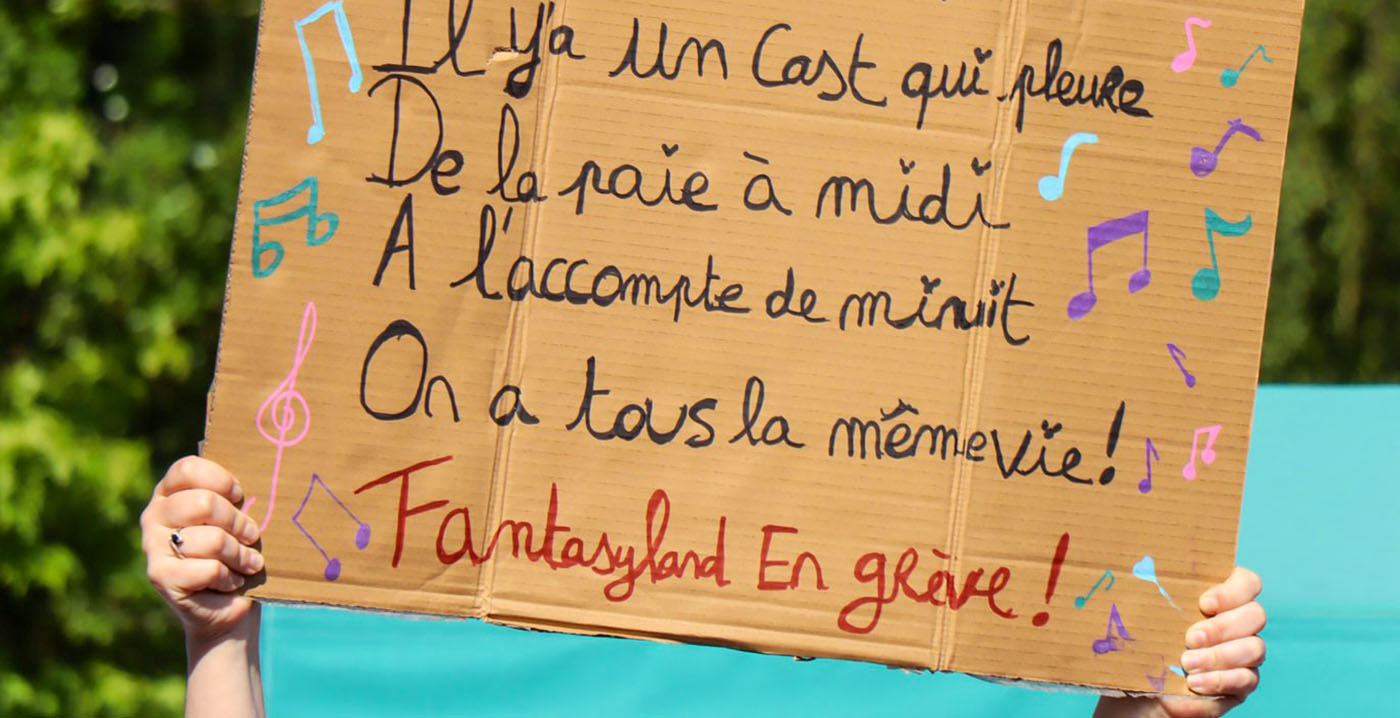 Il y'a un Cast qui pleure
De la paie à midi
A l'accompte de minuit
On a tous la même vie!
Fantasyland En grève!